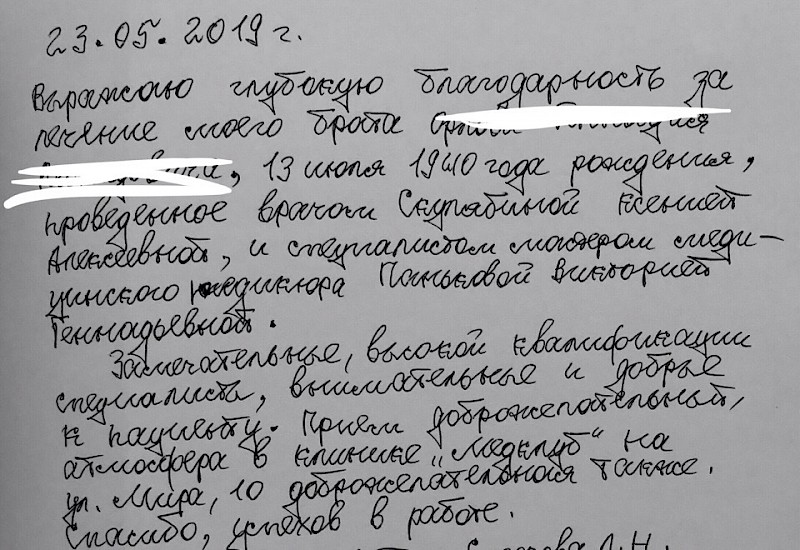 23.05.2019 г.
Выражаю глубокую благодарность за
лечение моего брата
13 июля 1940 года рождения,
проведенное врачом Скулябиной Ксенией
Алексеевной, и специалистом мастером меди-
цинского педикюра Паньковой Викторией
Геннадьевной.
Замечательные, высокой квалификации
специалисты, внимательные и добрые
к пациенту. Прием доброжелательный,
атмосфера в клинике „Медклуб“ на
ул. Мира, 10 доброжелательная также.
Спасибо, успехов в работе.
Л.Н.